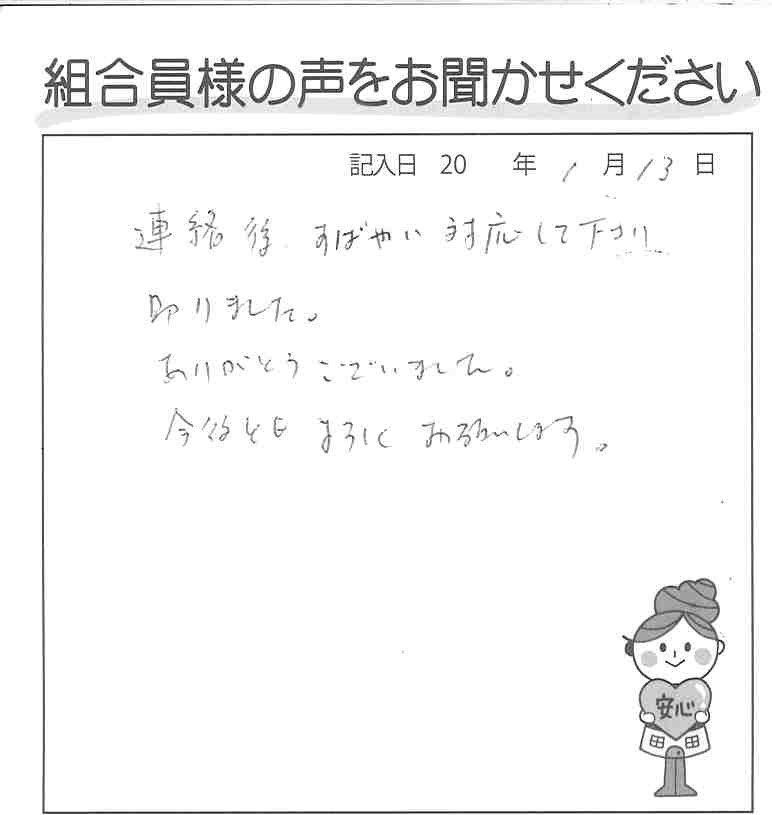 組合員様の声をお聞かせください
記入日 20 年 1 月 13 日
連絡後、すばやい対応して下さり
助りました。
ありがとうございました。
今後ともよろしくお願いします。
安心